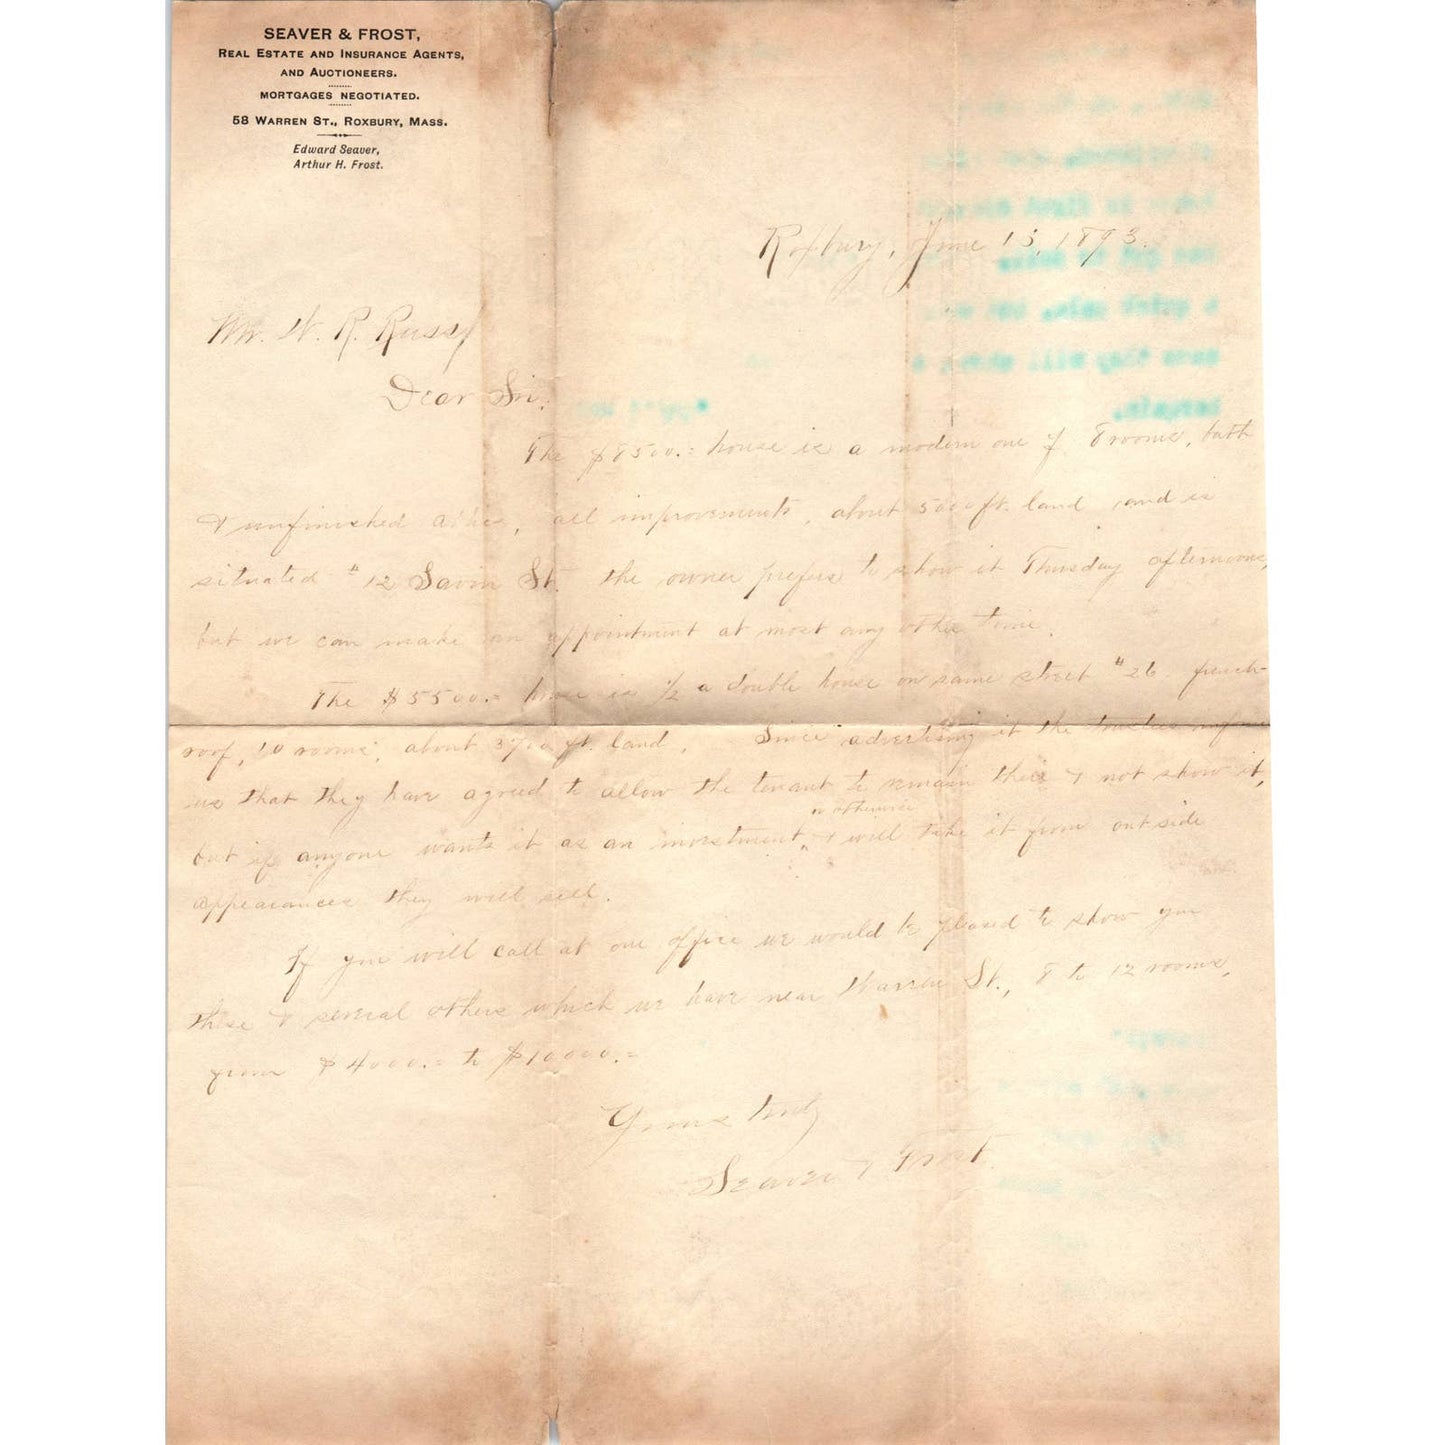 SEAVER & FROST,
REAL ESTATE AND INSURANCE AGENTS,
AND AUCTIONEERS.
MORTGAGES NEGOTIATED.
58 WARREN ST., ROXBURY, MASS.
Edward Seaver,
Arthur H. Frost.
Roxbury, June 15, 1893.
Mr. W. R. Russ
Dear Sir:
The $8500.= house is a modern one of 8 rooms, bath
& unfinished attic, all improvements, about 5000 ft. land and is
situated #12 Savin St. the owner prefers to show it Thursday afternoons,
but we can make an appointment at most any other time.
The $5500.= house is 1/2 a double house on same street #26 french-
roof, 10 rooms, about 3700 ft. land. Since advertising it the trustees inform
us that they have agreed to allow the tenant to remain there & not show it,
or otherwise
but if anyone wants it as an investment & will take it from outside
appearances they will sell.
If you will call at our office we would be pleased to show you
these & several others which we have near Warren St., 8 to 12 rooms,
from $4000.= to $10000.=
Yours truly
Seaver & Frost.